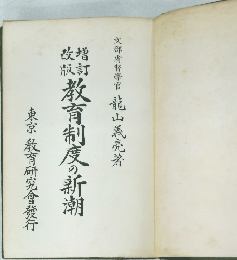 文部省督學官 龍山義亮著
增訂改版 教育制度の新潮
東京 教育研究會發行